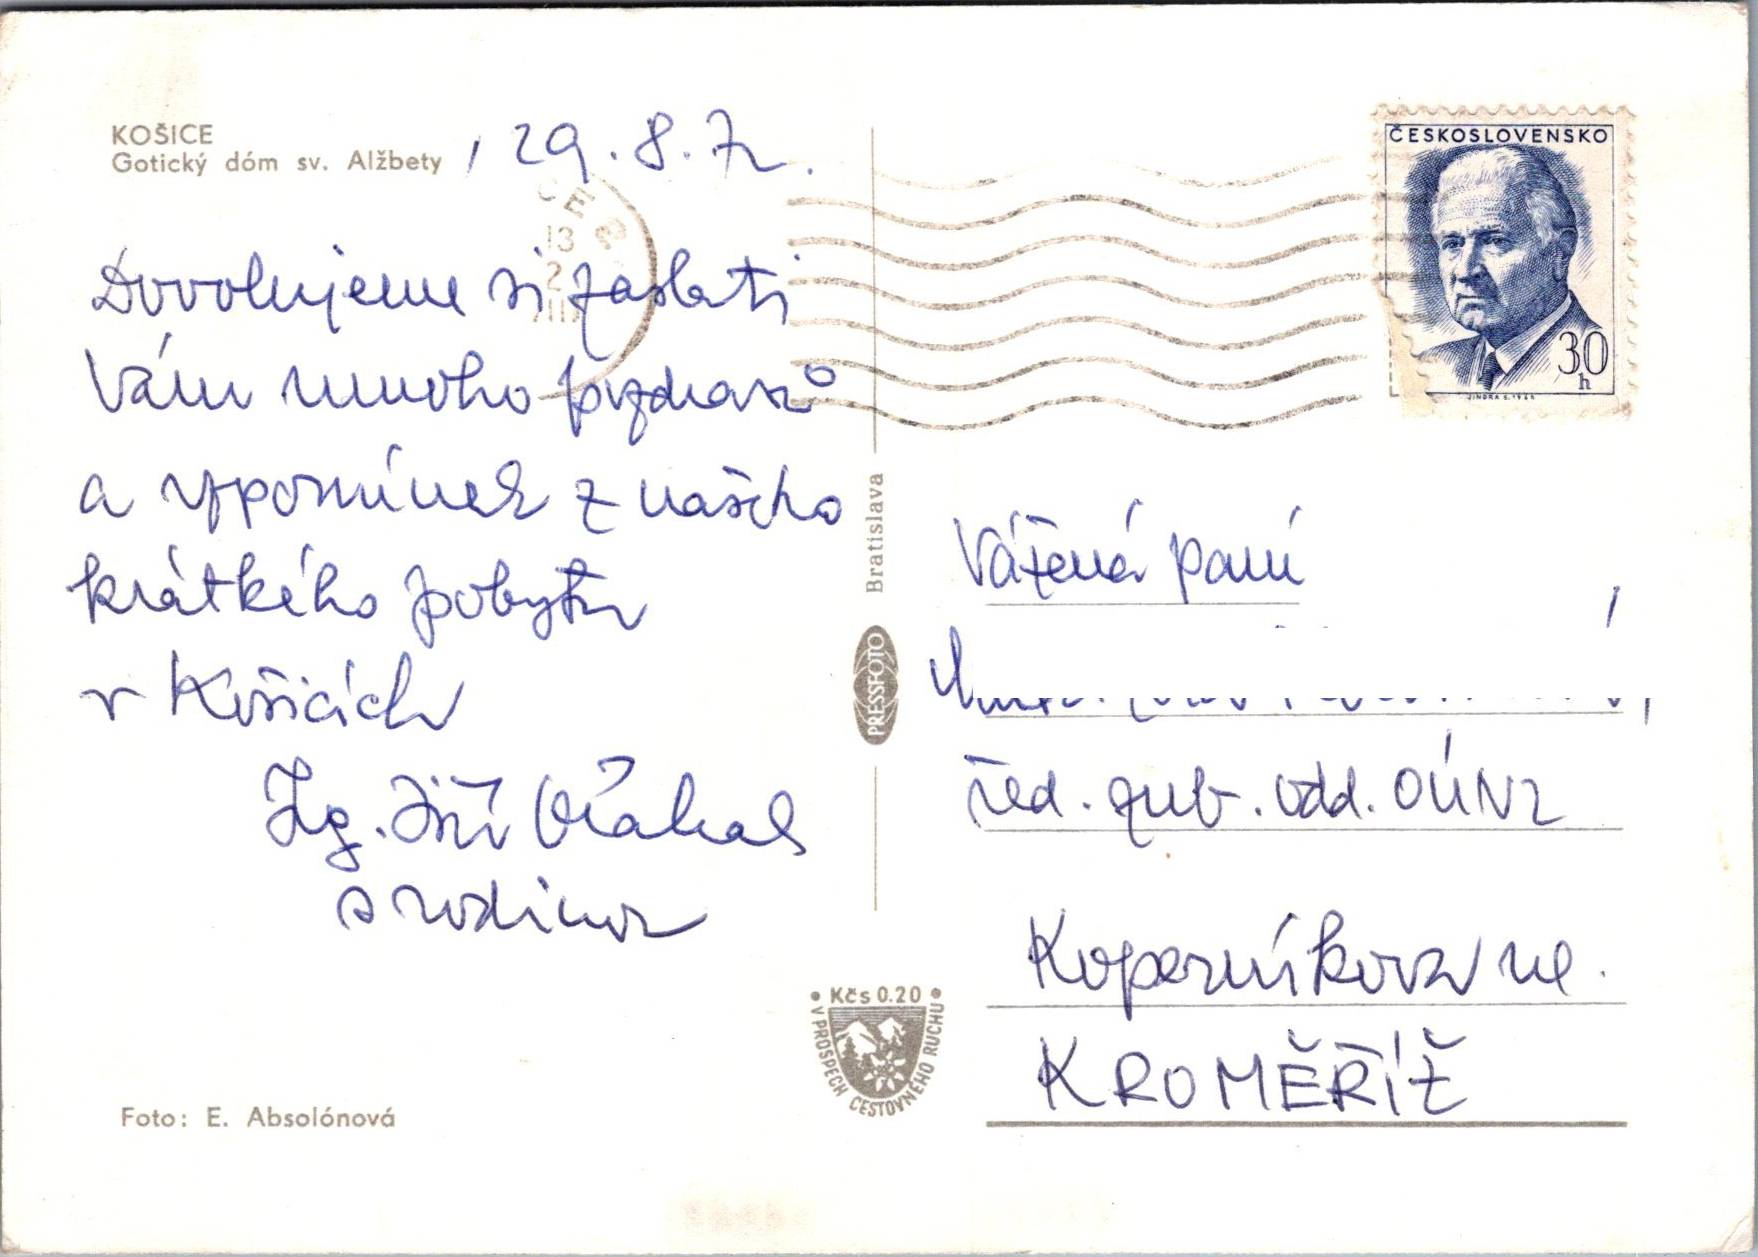 KOŠICE
Gotický dóm sv. Alžbety , 29.8.72.
Dovolujeme si zaslati
Vám mnoho pozdravů
a vzpomínek z našeho
krátkého pobytu
v Košicích
Ing. Jiří
s rodinou
Foto: E. Absolónová
Bratislava
PRESSFOTO
• Kčs 0.20 •
V PROSPECH CESTOVNÉHO RUCHU
ČESKOSLOVENSKO
30
h
JINDRA S. 1968
13
Vážená paní
řed. zub. odd. OÚNZ
Koperníkova ul.
KROMĚŘÍŽ